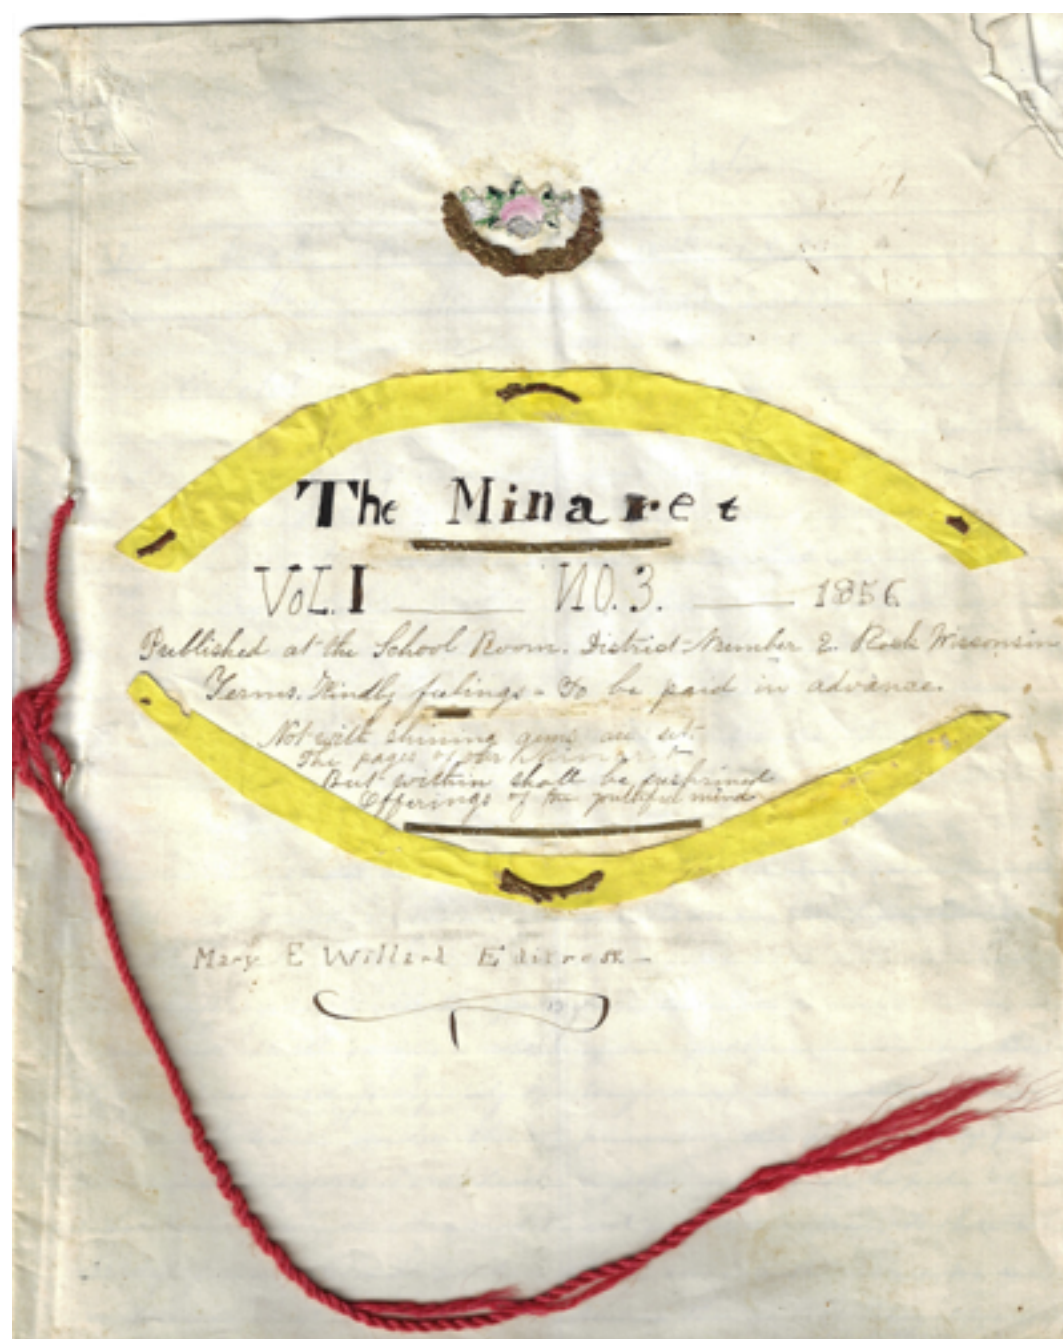 The Minaret
Vol. I No. 3. 1856
Published at the School Room. District Number 2. Rock Wisconsin
Terms. Kindly feelings - To be paid in advance.
Not with shining gems are set
The pages of our Minaret
But within shall be enshrined
Offerings of the youthful mind
Mary E Willard Editress -